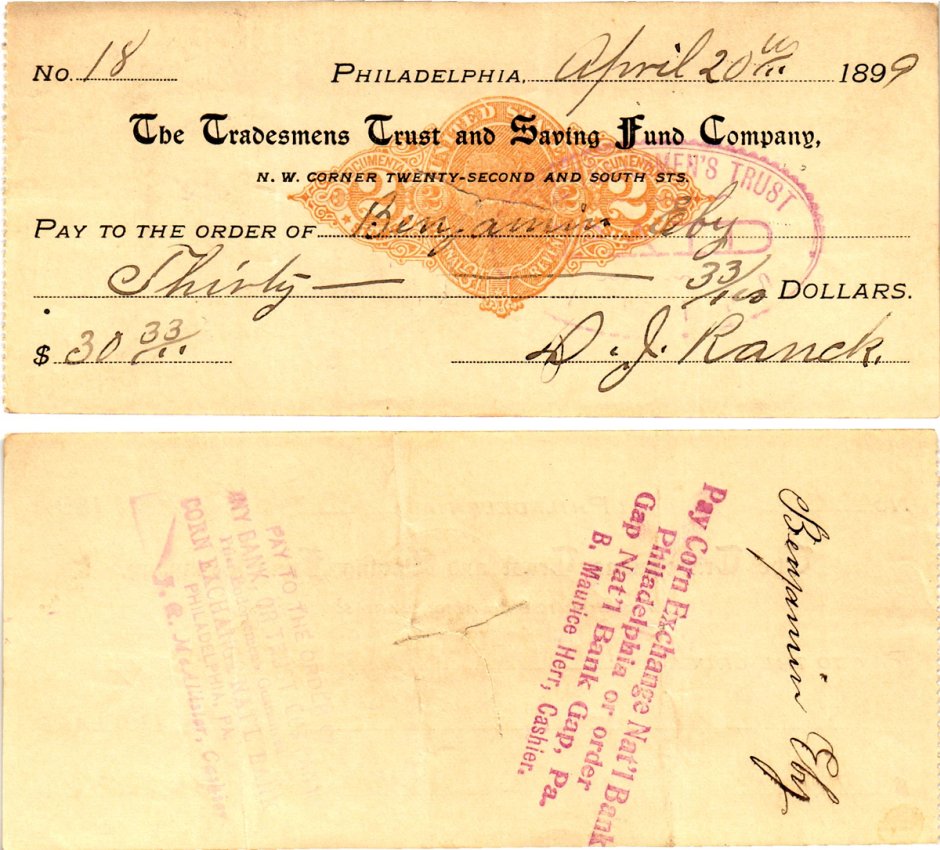 No. 18 PHILADELPHIA, April 20th 1899
The Tradesmens Trust and Saving Fund Company,
N. W. CORNER TWENTY-SECOND AND SOUTH STS.
UNITED STATES
DOCUMENTARY DOCUMENTARY
2 2 2 2
INTERNAL REVENUE
MEN'S TRUST
PAID
PAY TO THE ORDER OF Benjamin Eby
Thirty 33/100 DOLLARS.
$ 30 33/"" D. J. Ranck.
Benjamin Eby
Pay Corn Exchange Nat'l Bank
Philadelphia or order
Gap Nat'l Bank Gap, Pa.
B. Maurice Herr, Cashier.
PAY TO THE ORDER OF
ANY BANK OR
CORN EXCHANGE NAT'L
PHILADELPHIA, PA.
Cashier